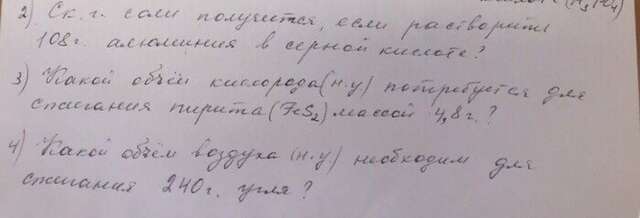 (H₃PO₄)
2) Ск. г. соли получится, если растворить
108г. алюминия в серной кислоте?
3) Какой объём кислорода (н.у) потребуется для
сжигания пирита (FeS₂) массой 4,8г.?
4) Какой объём воздуха (н.у.) необходим для
сжигания 240г. угля?